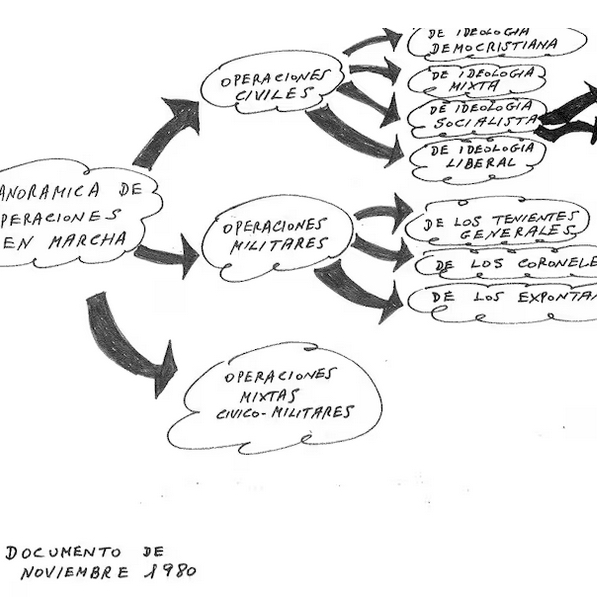 DE IDEOLOGIA
DEMOCRISTIANA
DE IDEOLOGIA
MIXTA
DE IDEOLOGIA
SOCIALISTA
DE IDEOLOGIA
LIBERAL
OPERACIONES
CIVILES
ANORAMICA DE
PERACIONES
EN MARCHA
OPERACIONES
MILITARES
DE LOS TENIENTES
GENERALES
DE LOS CORONELE
DE LOS EXPONTAN
OPERACIONES
MIXTAS
CIVICO-MILITARES
DOCUMENTO DE
NOVIEMBRE 1980